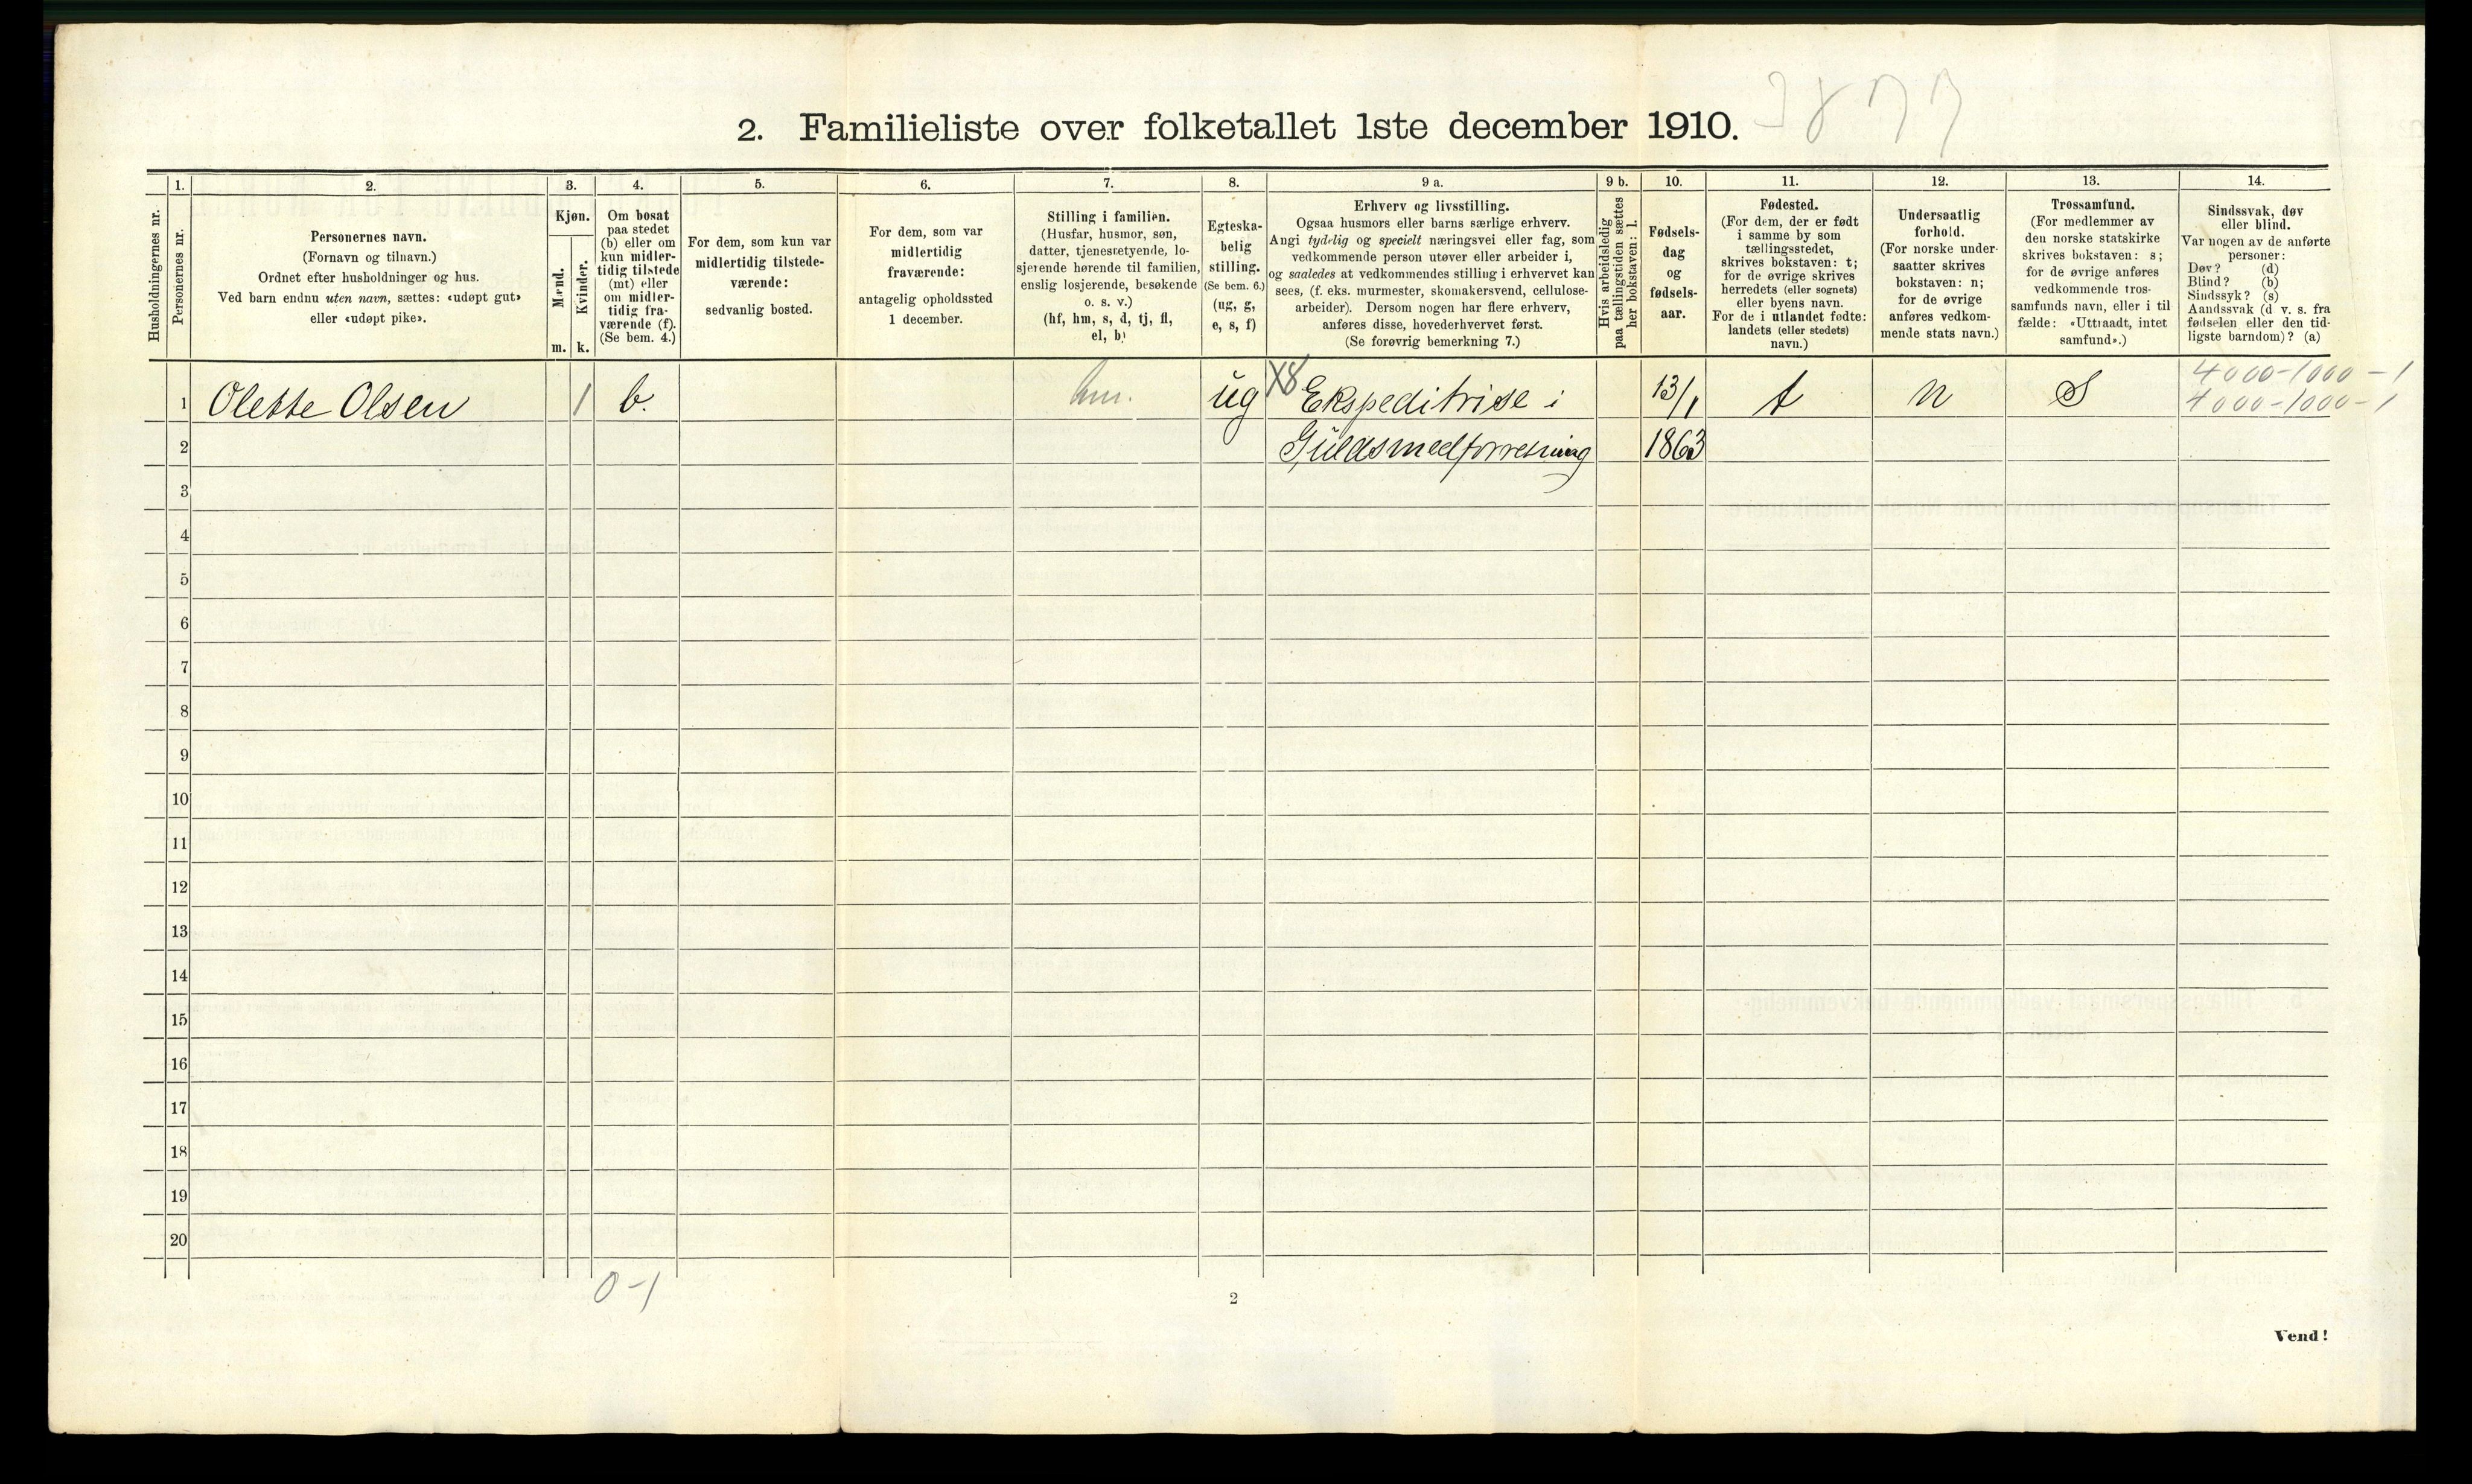 2. Familieliste over folketallet 1ste december 1910.
3877
Husholdningernes nr.
1.
Personernes nr.
2.
Personernes navn.
(Fornavn og tilnavn.)
Ordnet efter husholdninger og hus.
Ved barn endnu uten navn, sættes: «udøpt gut»
eller «udøpt pike».
3.
Kjøn.
Mænd.
m.
Kvinder.
k.
4.
Om bosat
paa stedet
(b) eller om
kun midler-
tidig tilstede
(mt) eller
om midler-
tidig fra-
værende (f).
(Se bem. 4.)
5.
For dem, som kun var
midlertidig tilstede-
værende:
sedvanlig bosted.
6.
For dem, som var
midlertidig
fraværende:
antagelig opholdssted
1 december.
7.
Stilling i familien.
(Husfar, husmor, søn,
datter, tjenestetyende, lo-
sjerende hørende til familien,
enslig losjerende, besøkende
o. s. v.)
(hf, hm, s, d, tj, fl,
el, b)
8.
Egteska-
belig
stilling.
(Se bem. 6.)
(ug, g,
e, s, f)
9 a.
Erhverv og livsstilling.
Ogsaa husmors eller barns særlige erhverv.
Angi tydelig og specielt næringsvei eller fag, som
vedkommende person utøver eller arbeider i,
og saaledes at vedkommendes stilling i erhvervet kan
sees, (f. eks. murmester, skomakersvend, cellulose-
arbeider). Dersom nogen har flere erhverv,
anføres disse, hovederhvervet først.
(Se forøvrig bemerkning 7.)
9 b.
Hvis arbeidsledig
paa tællingstiden sættes
her bokstaven: l.
10.
Fødsels-
dag
og
fødsels-
aar.
11.
Fødested.
(For dem, der er født
i samme by som
tællingsstedet,
skrives bokstaven: t;
for de øvrige skrives
herredets (eller sognets)
eller byens navn.
For de i utlandet fødte:
landets (eller stedets)
navn.)
12.
Undersaatlig
forhold.
(For norske under-
saatter skrives
bokstaven: n;
for de øvrige
anføres vedkom-
mende stats navn.)
13.
Trossamfund.
(For medlemmer av
den norske statskirke
skrives bokstaven: s;
for de øvrige anføres
vedkommende tros-
samfunds navn, eller i til-
fælde: «Uttraadt, intet
samfund».)
14.
Sindssvak, døv
eller blind.
Var nogen av de anførte
personer:
Døv? (d)
Blind? (b)
Sindssyk? (s)
Aandssvak (d. v. s. fra
fødselen eller den tid-
ligste barndom)? (a)
1 Olette Olsen 1 b. hm. ug X8 Ekspeditrise i 13/1 t n S 4000-1000-1
4000-1000-1
2 Guldsmedforretning 1863
3
4
5
6
7
8
9
10
11
12
13
14
15
16
17
18
19
20
0-1
2
Vend!